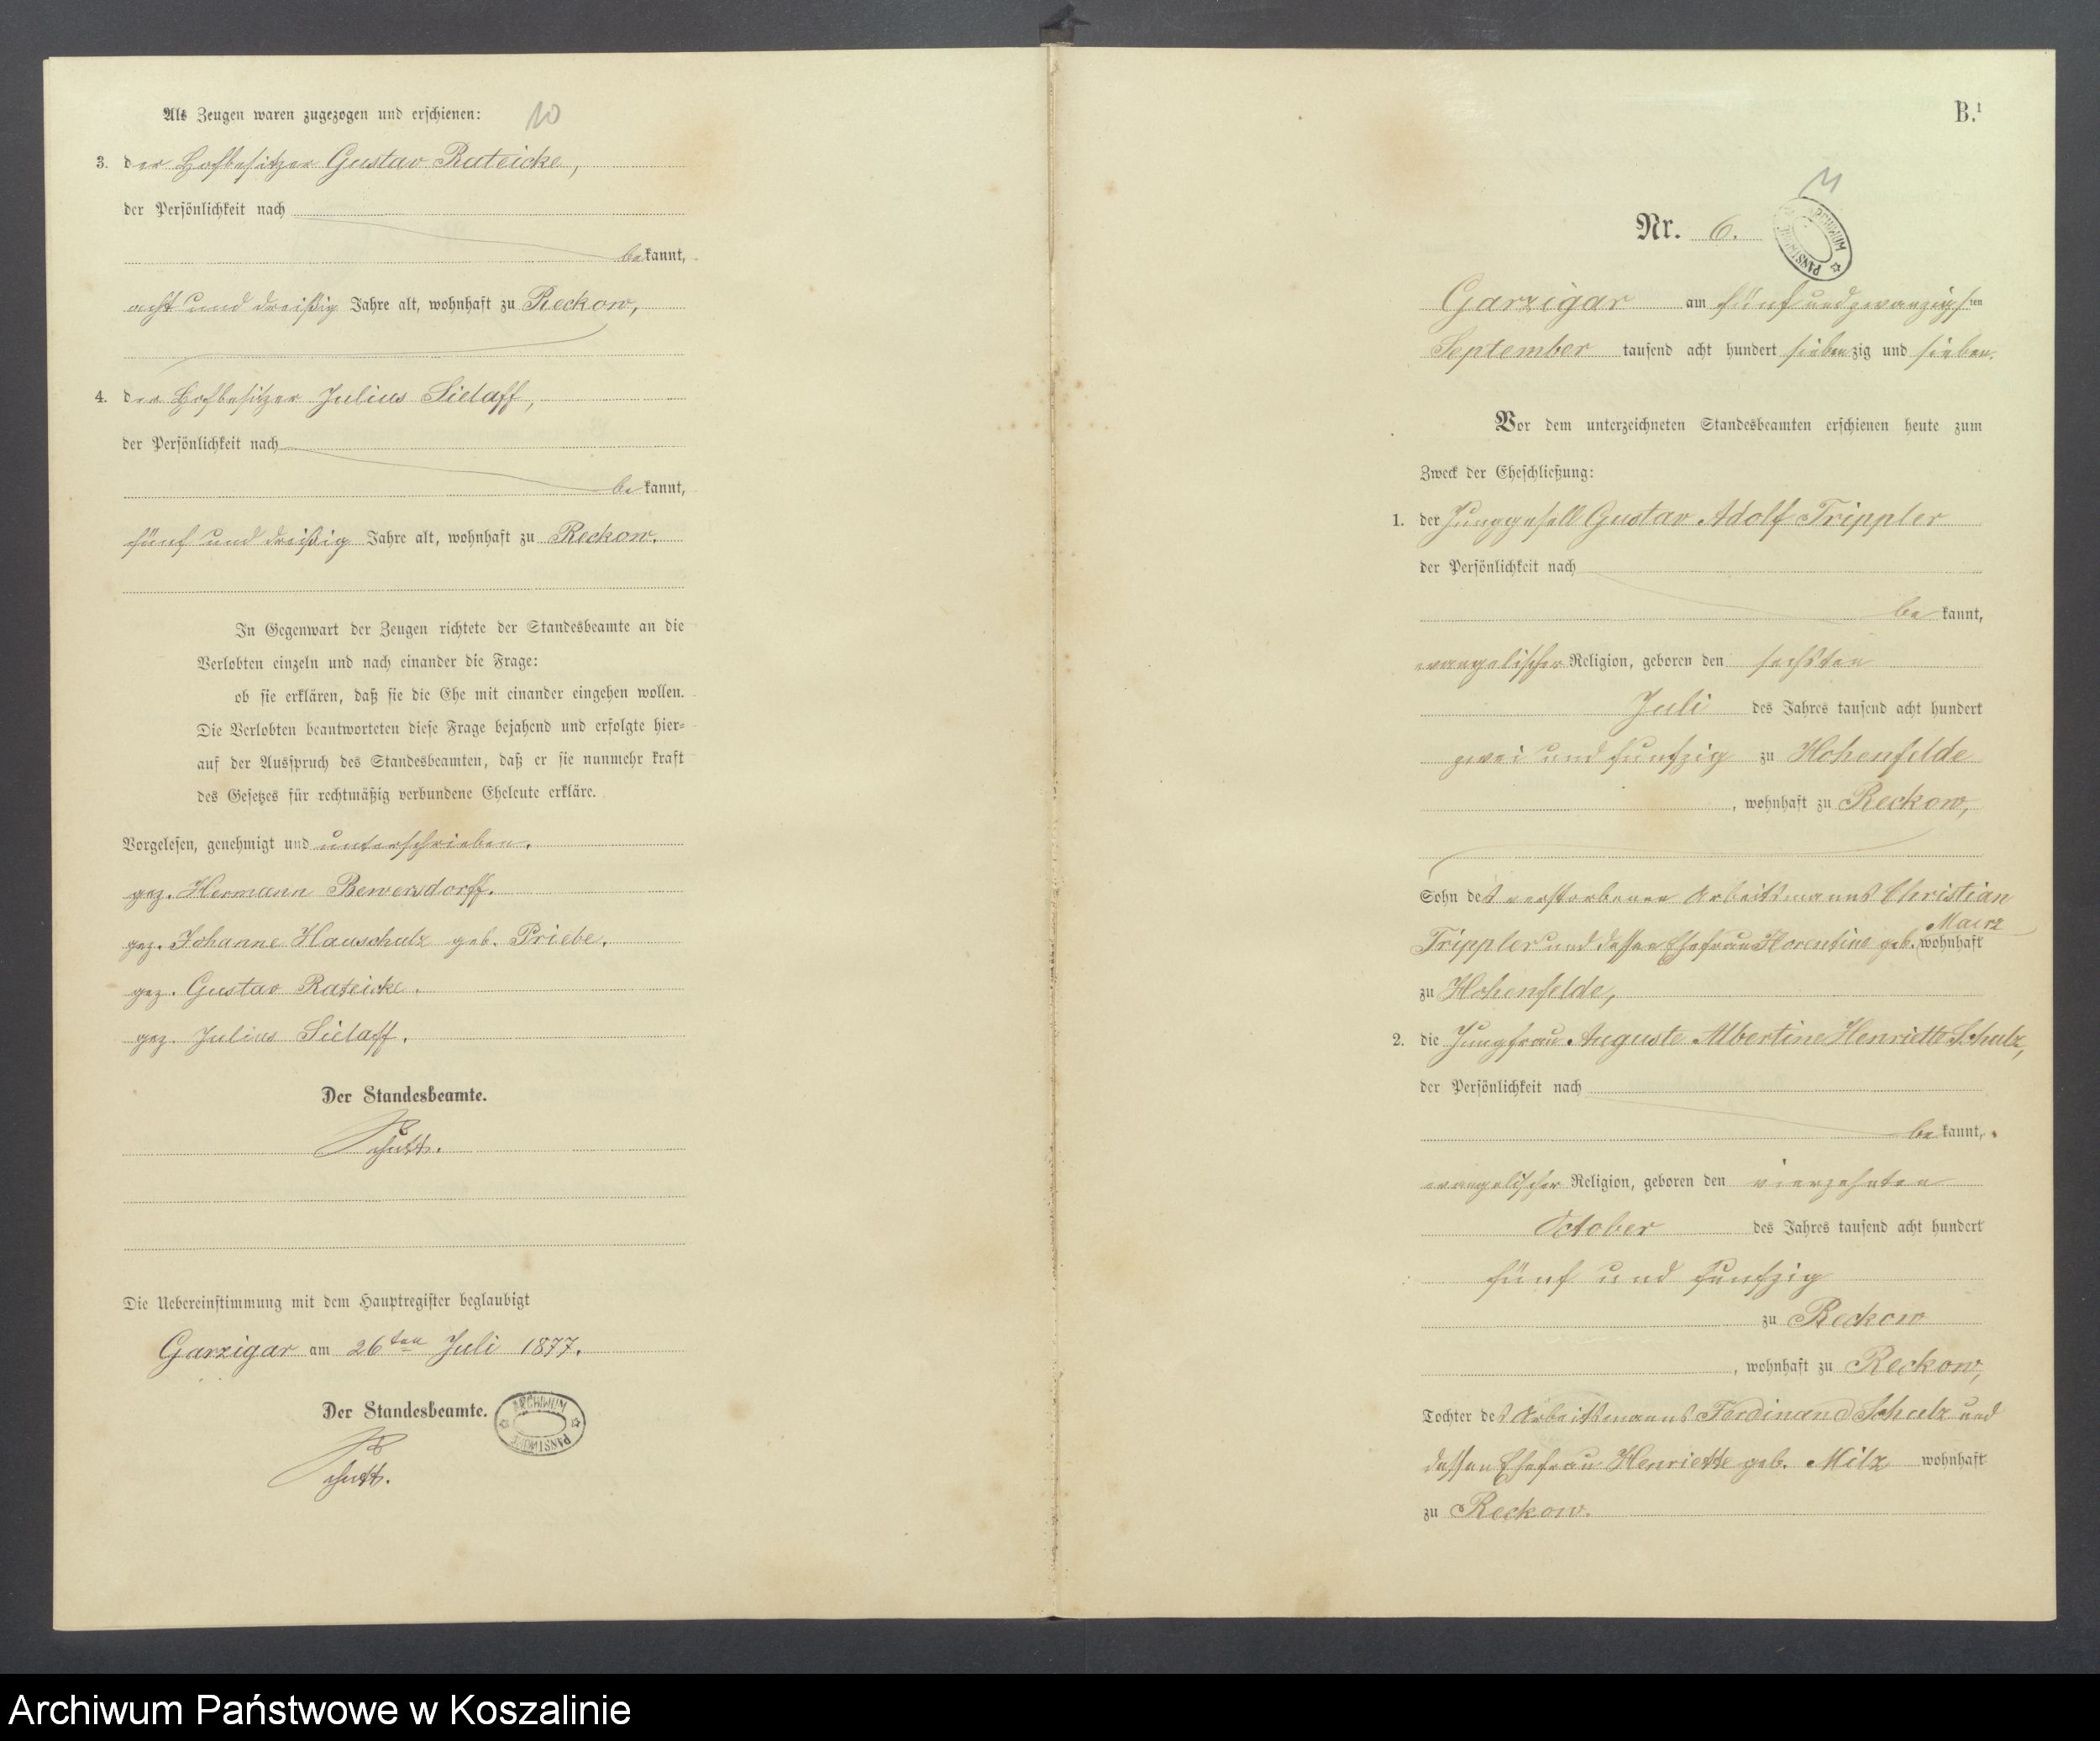 Als Zeugen waren zugezogen und erschienen:
10
3. der Hofbesitzer Gustav Rateicke,
der Persönlichkeit nach
bekannt,
acht und dreißig Jahre alt, wohnhaft zu Reckow,
4. der Hofbesitzer Julius Sielaff,
der Persönlichkeit nach
bekannt,
fünf und dreißig Jahre alt, wohnhaft zu Reckow.
In Gegenwart der Zeugen richtete der Standesbeamte an die
Verlobten einzeln und nach einander die Frage:
ob sie erklären, daß sie die Ehe mit einander eingehen wollen.
Die Verlobten beantworteten diese Frage bejahend und erfolgte hier-
auf der Ausspruch des Standesbeamten, daß er sie nunmehr kraft
des Gesetzes für rechtmäßig verbundene Eheleute erkläre.
Vorgelesen, genehmigt und unterschrieben.
gez. Hermann Bewersdorff.
gez. Johanne Hauschulz geb. Priebe.
gez. Gustav Rateicke.
gez. Julius Sielaff.
Der Standesbeamte.
Die Uebereinstimmung mit dem Hauptregister beglaubigt
Garzigar am 26ten Juli 1877.
Der Standesbeamte.
ARCHIWUM PAŃSTWOWE
B.¹
11
Nr. 6.
ARCHIWUM PAŃSTWOWE
Garzigar am fünfundzwanzigsten
September tausend acht hundert siebenzig und sieben.
Vor dem unterzeichneten Standesbeamten erschienen heute zum
Zweck der Eheschließung:
1. der Junggesell Gustav Adolf Trippler
der Persönlichkeit nach
bekannt,
evangelischer Religion, geboren den sechsten
Juli des Jahres tausend acht hundert
zwei und funfzig zu Hohenfelde
, wohnhaft zu Reckow,
Sohn des verstorbenen Arbeitsmanns Christian
Trippler und dessen Ehefrau Florentine geb. Maerz wohnhaft
zu Hohenfelde,
2. die Jungfrau Auguste Albertine Henriette Schulz,
der Persönlichkeit nach
bekannt,
evangelischer Religion, geboren den vierzehnten
October des Jahres tausend acht hundert
fünf und funfzig
zu Reckow
, wohnhaft zu Reckow,
Tochter des Arbeitsmanns Ferdinand Schulz und
dessen Ehefrau Henriette geb. Milz wohnhaft
zu Reckow.
Archiwum Państwowe w Koszalinie